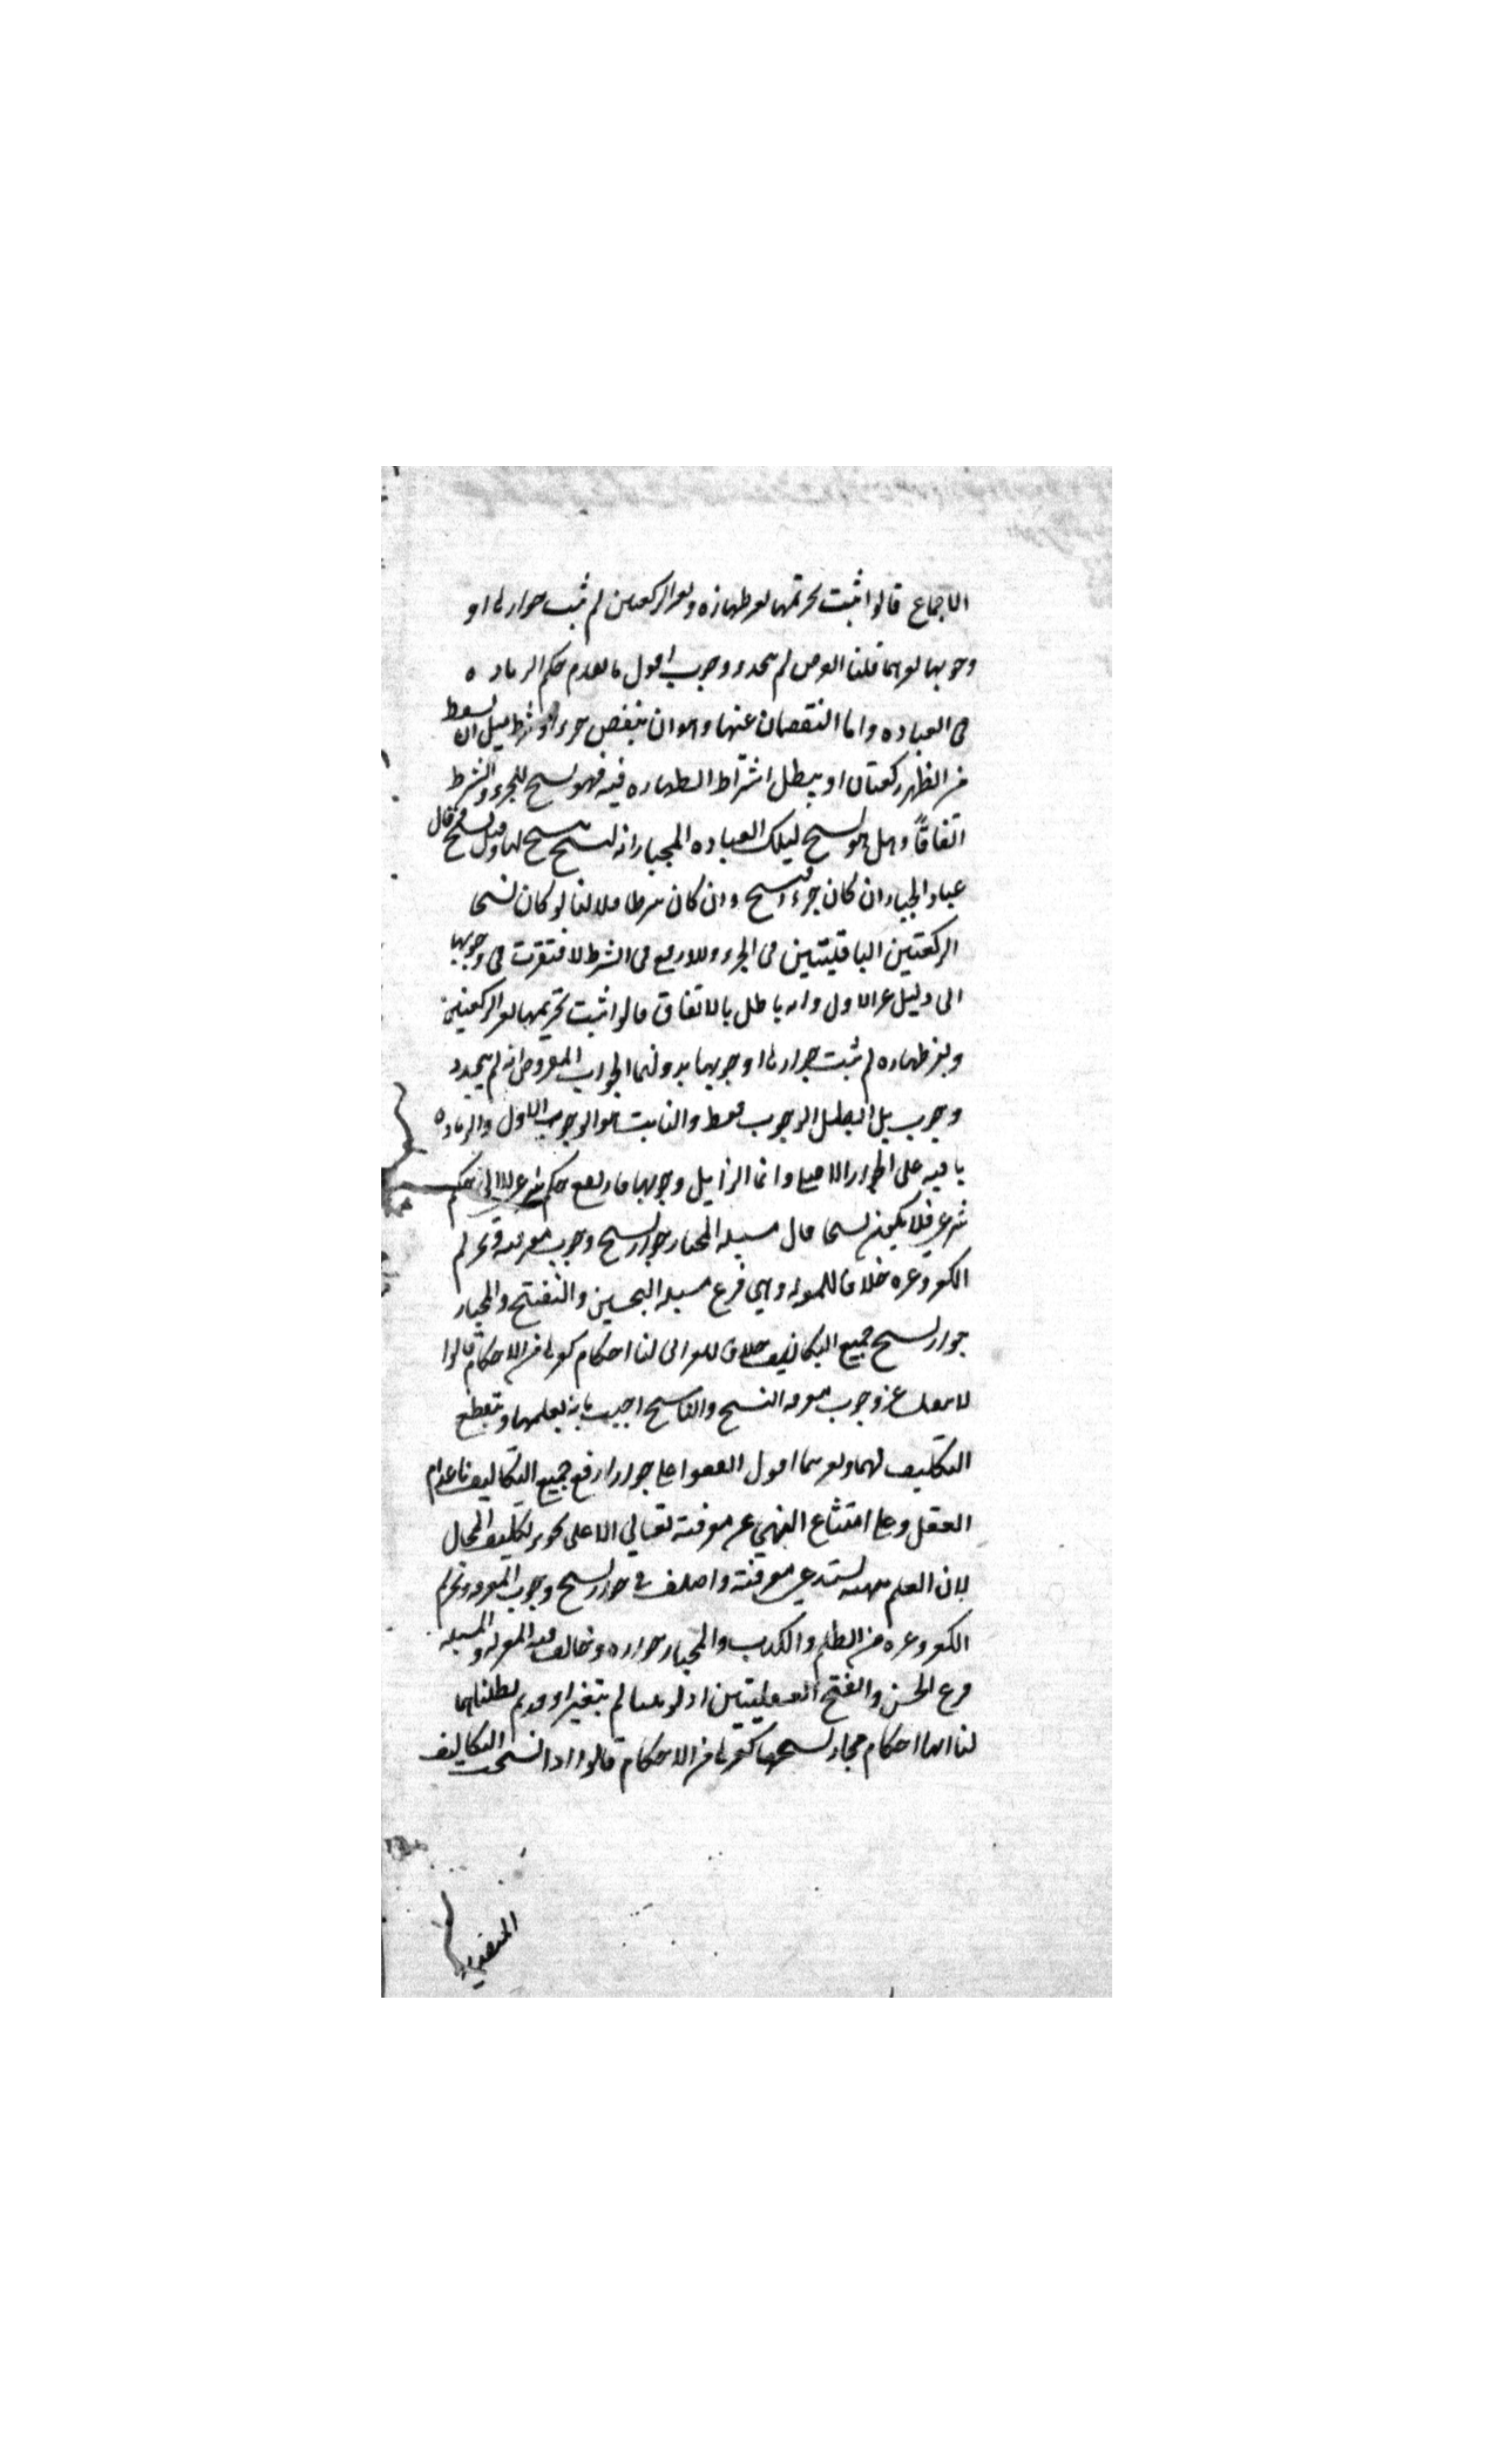 الاجماع قالوا ثبت تحريمها بغير طهارة وبغير الركعتين ثم ثبت جوازها او
وجوبها بغيرهما قلنا الفرض لم يتجدد وجوب اقول ما تقدم حكم الزيادة
في العبادة واما النقصان عنها وهو ان ينقص جزء او شرط مثل ان يسقط
من الظهر ركعتان او يبطل اشتراط الطهارة فيه فهو نسخ للجزء والشرط
اتفاقاً وهل هو نسخ لتلك العبادة المختار انه ليس بنسخ لها وقيل نسخ وقال
عبد الجبار ان كان جزءا فنسخ وان كان شرطا فلا لنا لو كان نسخا
الركعتين الباقيتين في الجزء وللاربع في الشرط لافتقرت في وجوبها
الى دليل غير الاول وانه باطل بالاتفاق قالوا ثبت تحريمها بغير الركعتين
وبغير طهارة ثم ثبت جوازها او وجوبها بدونهما الجواب المفروض انه لم يتجدد
وجوب بل ابطل الوجوب فقط والثابت هو الوجوب الاول والزيادة
باقية على الجواز الاصلي وانما الزايل وجوبها فارتفع حكم شرعي لا الى حكم
شرعي فلا يكون نسخا قال مسئلة المختار جواز نسخ وجوب معرفته وتحريم
الكفر وغيره خلافا للمعتزلة وهي فرع مسئلة التحسين والتقبيح والمختار
جواز نسخ جميع التكاليف خلافا للغزالي لنا احكام كغيرها من الاحكام قالوا
لا ينفك عن وجوب معرفة النسخ والناسخ اجيب بانه يعلمهما وينقطع
التكليف لهما وبغيرهما اقول اتفقوا على جواز رفع جميع التكاليف باعدام
العقل وعلى امتناع النهي عن معرفته تعالى الا على تجويز تكليف المحال
لان العلم بنهيه يستدعي معرفته واختلف في جواز نسخ وجوب المعرفة وتحريم
الكفر وغيره من الظلم والكذب والمختار جوازه وخالف فيه المعتزلة والمسئلة
فرع الحسن والقبح العقليتين اذ لو ثبتا لم يتغيرا وقد تم بطلانهما
لنا انها احكام فجاز نسخها كغيرها من الاحكام قالوا اذا نسخت التكاليف